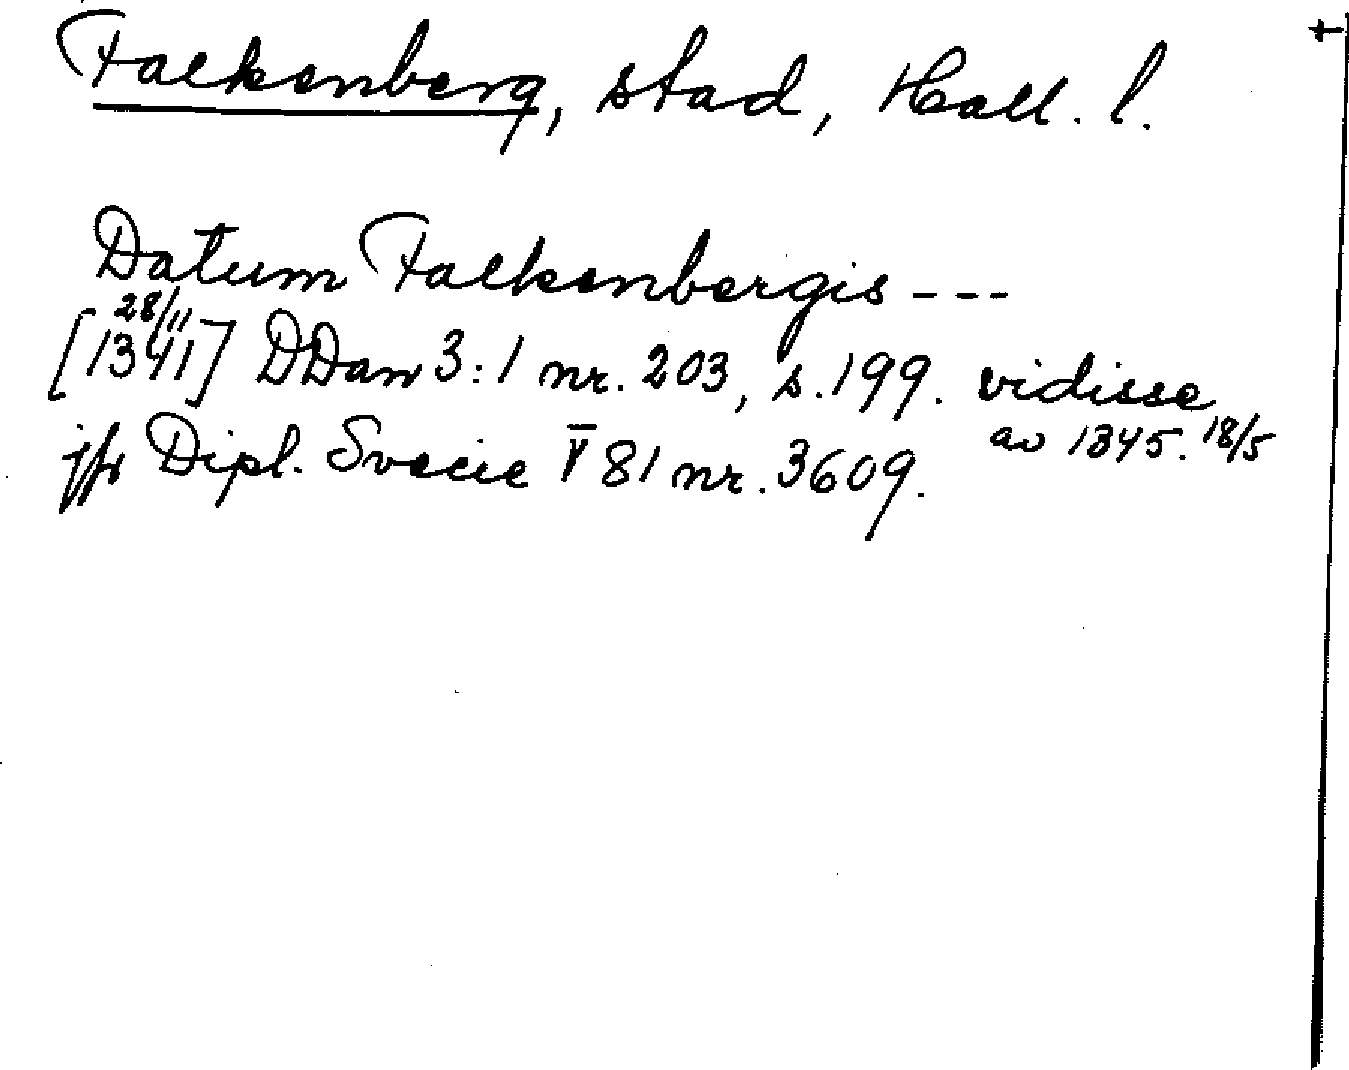 Falkenberg, stad, Hall. l.
Datum Falkenbergis ---
[1341] 28/11 DDan 3:1 nr. 203, s. 199. vidisse
av 1345. 18/5
jfr Dipl. Svecie V 81 nr. 3609.